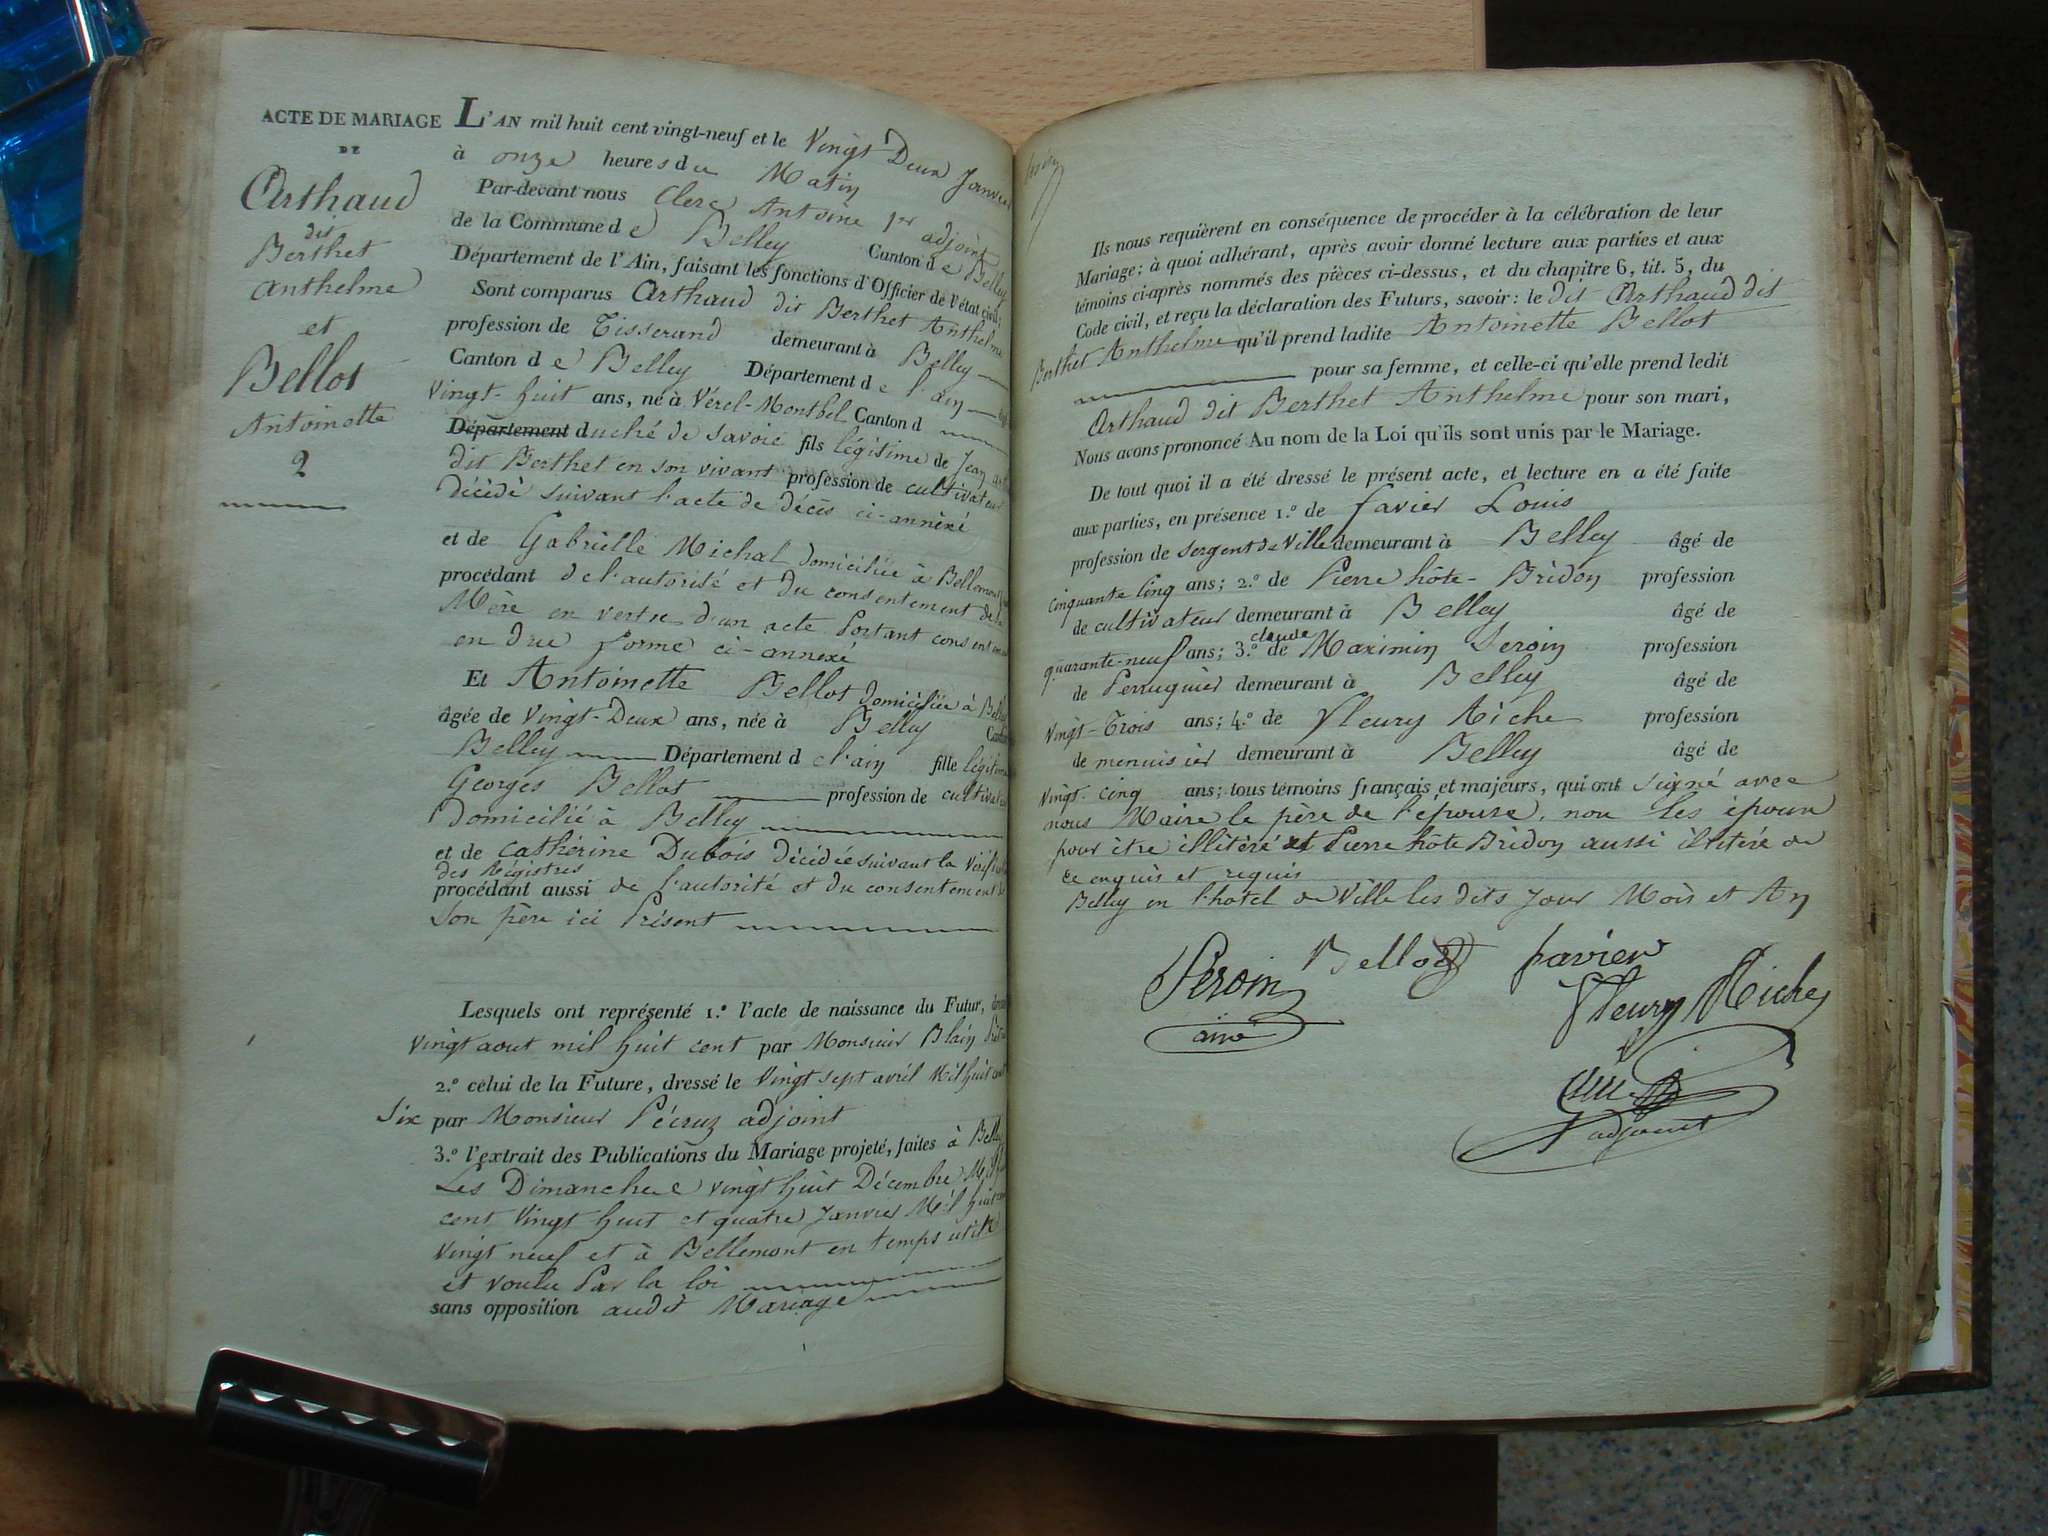 ACTE DE MARIAGE
DE
Arthaud
dit
Berthet
Anthelme
et
Bellot
Antoinette
2
L'AN mil huit cent vingt-neuf et le Vingt Deux Janvier
à onze heures du Matin
Par-devant nous Clerc Antoine 1er adjoint
de la Commune de Belley Canton de Belley
Département de l'Ain, faisant les fonctions d'Officier de l'état civil,
Sont comparus Arthaud dit Berthet Anthelme
profession de Tisserand demeurant à Belley
Canton de Belley Département de l'ain
Vingt-huit ans, né à Vérel-Montbel Canton d
Département duché de Savoie fils légitime de Jean
dit Berthet en son vivant profession de cultivateur
décédé suivant l'acte de décès ci-annexé
et de Gabrielle Michal domiciliée à
procédant de l'autorité et du consentement de la
Mère en vertu d'un acte Portant
en due forme ci-annexé
Et Antoinette Bellot domiciliée à Belley
âgée de Vingt-Deux ans, née à Belley Canton
Belley Département de l'ain fille légitime
Georges Bellot profession de cultivateur
domicilié à Belley
et de Cathérine Dubois décédée suivant la
des Registres
procédant aussi de l'autorité et du consentement de
Son père ici Présent
Lesquels ont représenté 1.º l'acte de naissance du Futur,
Vingt aout mil huit cent par Monsieur Blain
2.º celui de la Future, dressé le Vingt sept avril Mil huit cent
Six par Monsieur Pécruz adjoint
3.º l'extrait des Publications du Mariage projeté, faites à Belley
Les Dimanche vingt huit Décembre
cent Vingt huit et quatre Janvier Mil huit
Vingt neuf et à Bellemont en temps utile
et voulu Par la loi
sans opposition audit Mariage
Ils nous requièrent en conséquence de procéder à la célébration de leur
Mariage; à quoi adhérant, après avoir donné lecture aux parties et aux
témoins ci-après nommés des pièces ci-dessus, et du chapitre 6, tit. 5, du
Code civil, et reçu la déclaration des Futurs, savoir: le dit Arthaud dit
Berthet Anthelme qu'il prend ladite Antoinette Bellot
pour sa femme, et celle-ci qu'elle prend ledit
Arthaud dit Berthet Anthelme pour son mari,
Nous avons prononcé Au nom de la Loi qu'ils sont unis par le Mariage.
De tout quoi il a été dressé le présent acte, et lecture en a été faite
aux parties, en présence 1.º de favier Louis
profession de Sergent de Ville demeurant à Belley âgé de
Cinquante Cinq ans; 2.º de Pierre hôte-Bridon profession
de cultivateur demeurant à Belley âgé de
quarante-neuf ans; 3.º de claude Maximin Peroin profession
de Perruquier demeurant à Belley âgé de
Vingt-Trois ans; 4.º de Fleury Miche profession
de menuisier demeurant à Belley âgé de
Vingt-Cinq ans; tous témoins français et majeurs, qui ont signé avec
nous Maire le père de l'épouse, non les époux
pour être illitéré et Pierre hôte Bridon aussi illitéré de
ce enquis et requis
Belley en l'hotel de Ville les dits Jour Mois et An
Peroin Bellot favier
ainé
Fleury Miche
Clerc
adjoint